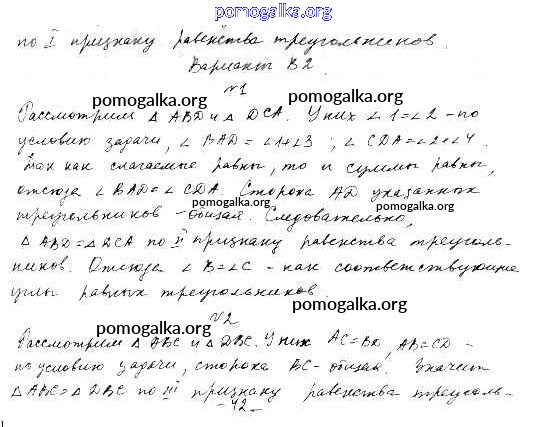 pomogalka.org
по I признаку равенства треугольников.
Вариант В2.
№1
pomogalka.org pomogalka.org
Рассмотрим △ ABD и △ DCA. У них ∠1=∠2 – по
pomogalka.org pomogalka.org
условию задачи, ∠ BAD = ∠1+∠3 ; ∠ CDA=∠2+∠4.
Так как слагаемые равны, то и суммы равны,
pomogalka.org
отсюда ∠ BAD=∠ CDA. Сторона AD указанных
pomogalka.org pomogalka.org
треугольников – общая. Следовательно,
△ ABD=△DCA по II признаку равенства треуголь-
ников. Отсюда ∠ B=∠C – как соответствующие
углы равных треугольников.
pomogalka.org
№2
pomogalka.org
Рассмотрим △ ABC и △ DBC. У них AC=BD, AB=CD –
pomogalka.org
по условию задачи, сторона BC – общая. Значит
△ABC=△ DBC по III признаку равенства треуголь-
-42-